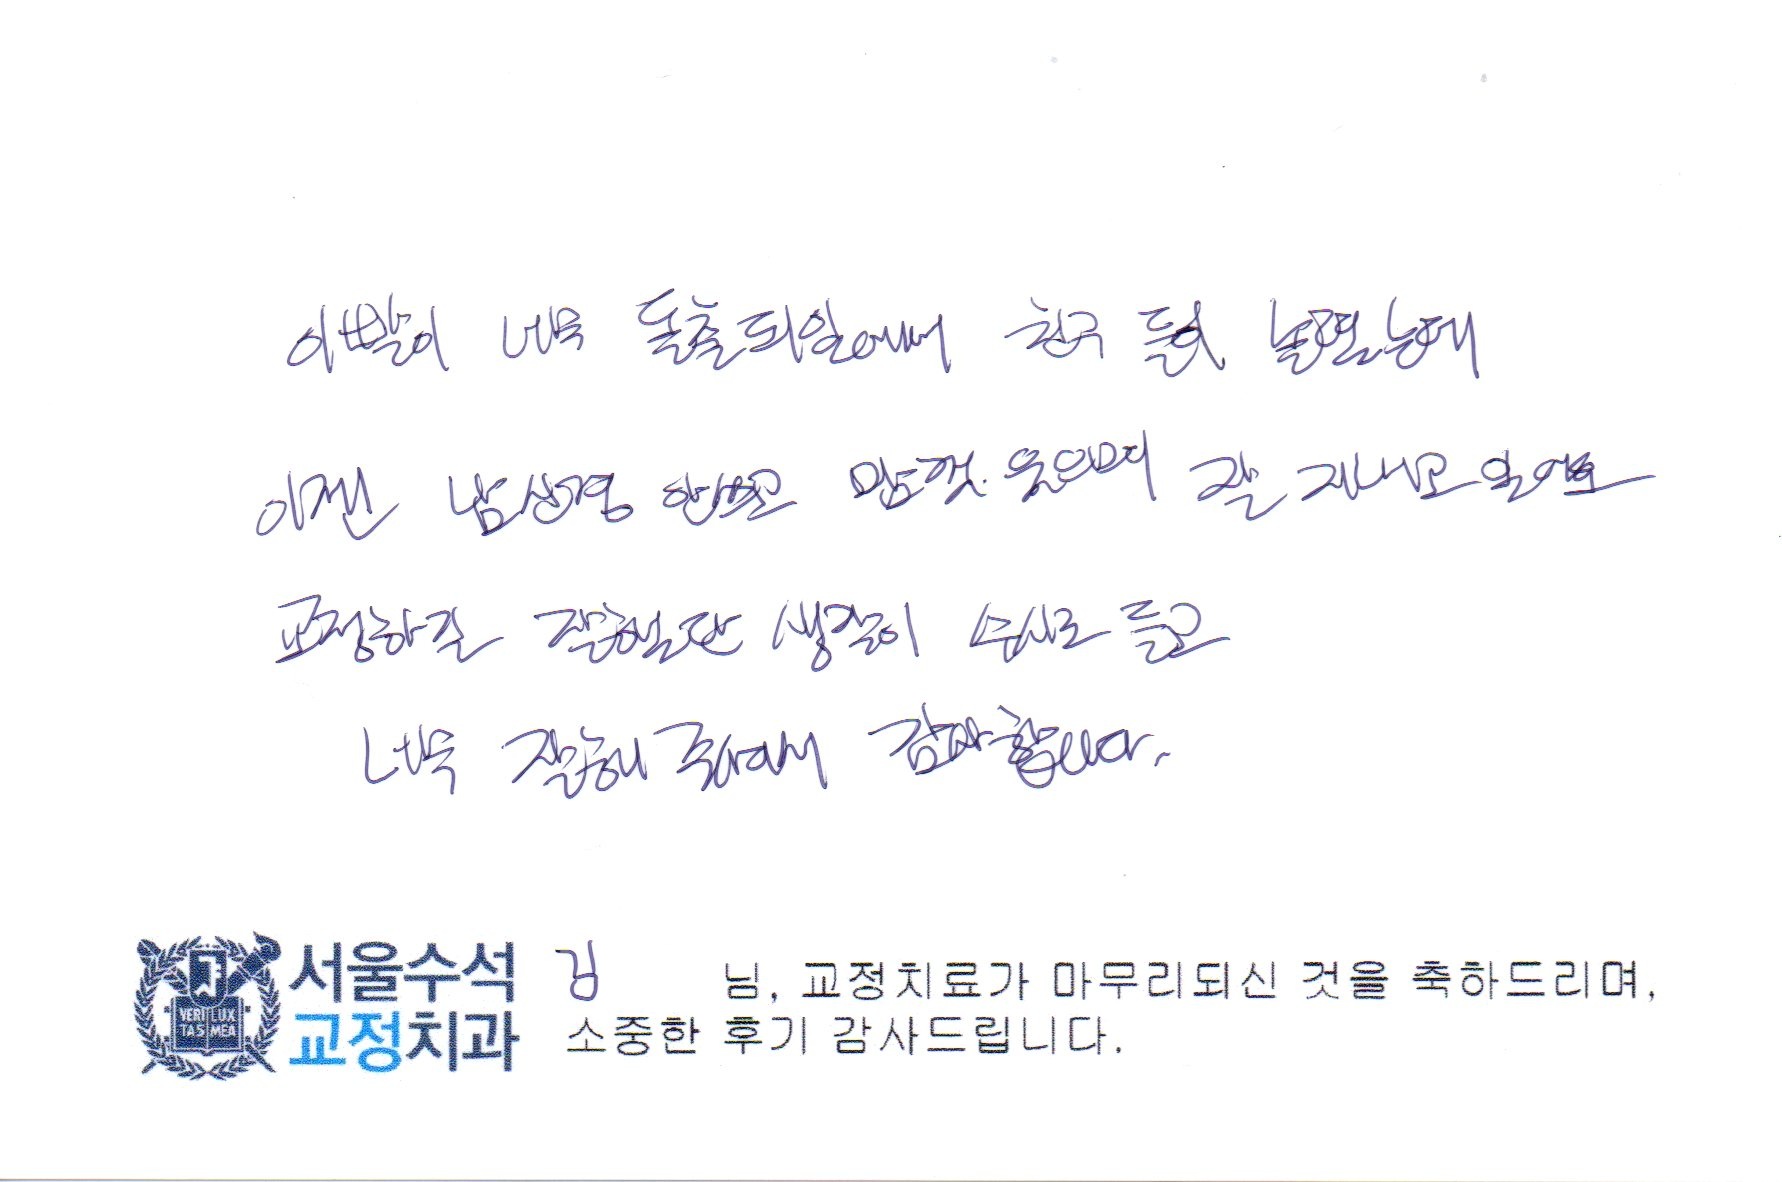 이빨이 너무 돌출되있어서 친구들이 놀렸는데
이젠 남 신경 안쓰고 맘껏 웃으며 잘 지내고 있어요
교정하길 잘했단 생각이 수시로 들고
너무 잘해 주셔서 감사합니다.
서울수석
교정치과
VERI LUX
TAS MEA
김 님, 교정치료가 마무리되신 것을 축하드리며,
소중한 후기 감사드립니다.